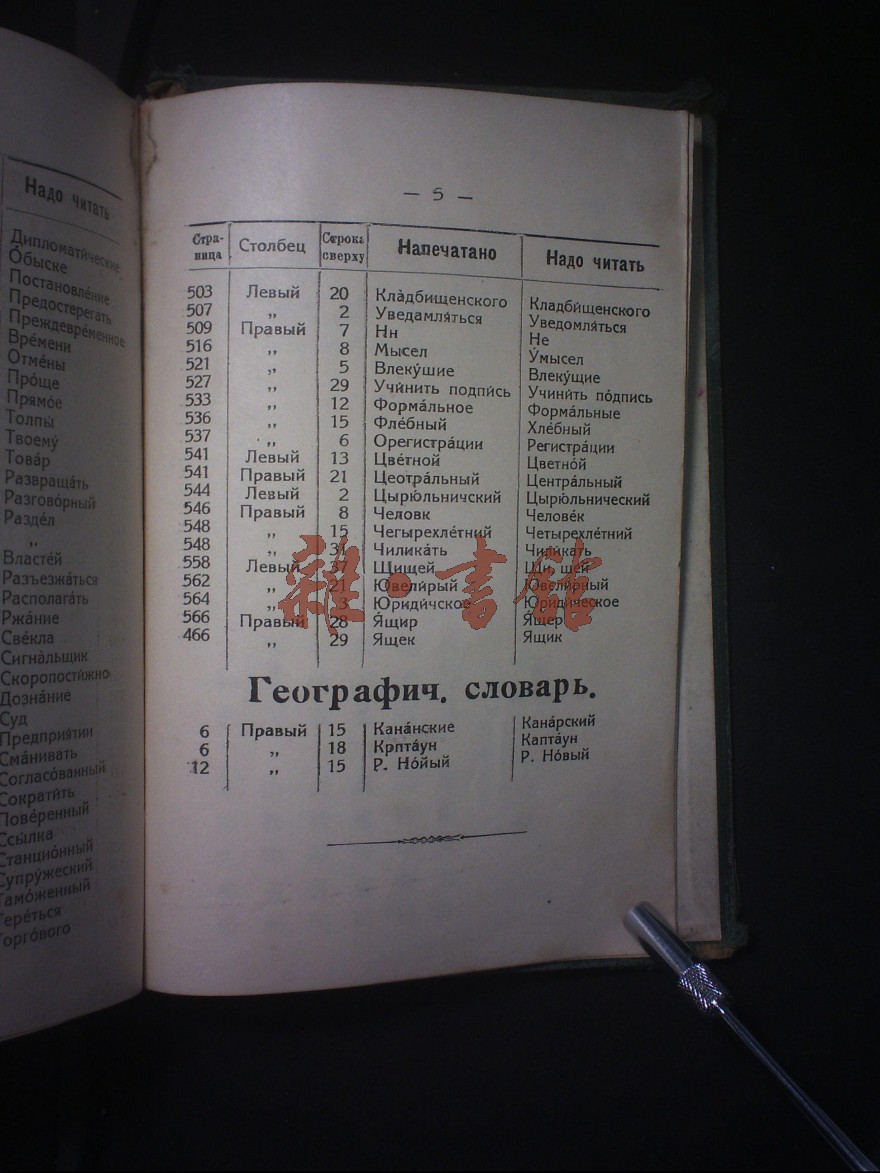 Надо читать
Дипломати́ческие
О́быске
Постановле́ние
Предостерега́ть
Преждевре́менное
Вре́мени
Отме́ны
Про́ще
Прямо́е
Толпы́
Твоему́
Това́р
Развраща́ть
Разгово́рный
Разде́л
„
Власте́й
Разъезжа́ться
Располага́ть
Ржа́ние
Свёкла
Сигна́льщик
Скоропости́жно
Дозна́ние
Суд
Предприя́тии
Сма́нивать
Согласо́ванный
Сократи́ть
Пове́ренный
Ссы́лка
Станцио́нный
Супру́жеский
Тамо́женный
Тере́ться
Торго́вого
— 5 —
Стра-ница Столбец Строка сверху Напечатано Надо читать
503 Левый 20 Кла̀дбищенского Кладби́щенского
507 „ 2 Уведамля́ться Уведомля́ться
509 Правый 7 Нн Не
516 „ 8 Мысел У́мысел
521 „ 5 Влеку́шие Влеку́щие
527 „ 29 Учи́нить подпи́сь Учини́ть по́дпись
533 „ 12 Форма́льное Форма́льные
536 „ 15 Фле́бный Хле́бный
537 „ 6 Орегистра́ции Регистра́ции
541 Левый 13 Цве́тной Цветно́й
541 Правый 21 Цеотра́льный Центра́льный
544 Левый 2 Цырю́льничский Цырю́льнический
546 Правый 8 Человк Челове́к
548 „ 15 Чегырехле́тний Четырехле́тний
548 „ 31 Чилика́ть Чили́кать
558 Левый 37 Щищей Щи щей
562 „ 21 Ювели́рый Ювели́рный
564 „ 3 Юриди́чское Юриди́ческое
566 Правый 28 Я́щир Я́щер
466 „ 29 Ящек Ящик
Географич. словарь.
6 Правый 15 Кана́нские Кана́рский
6 „ 18 Крпта́ун Капта́ун
12 „ 15 Р. Но́йый Р. Но́вый
雜·書館